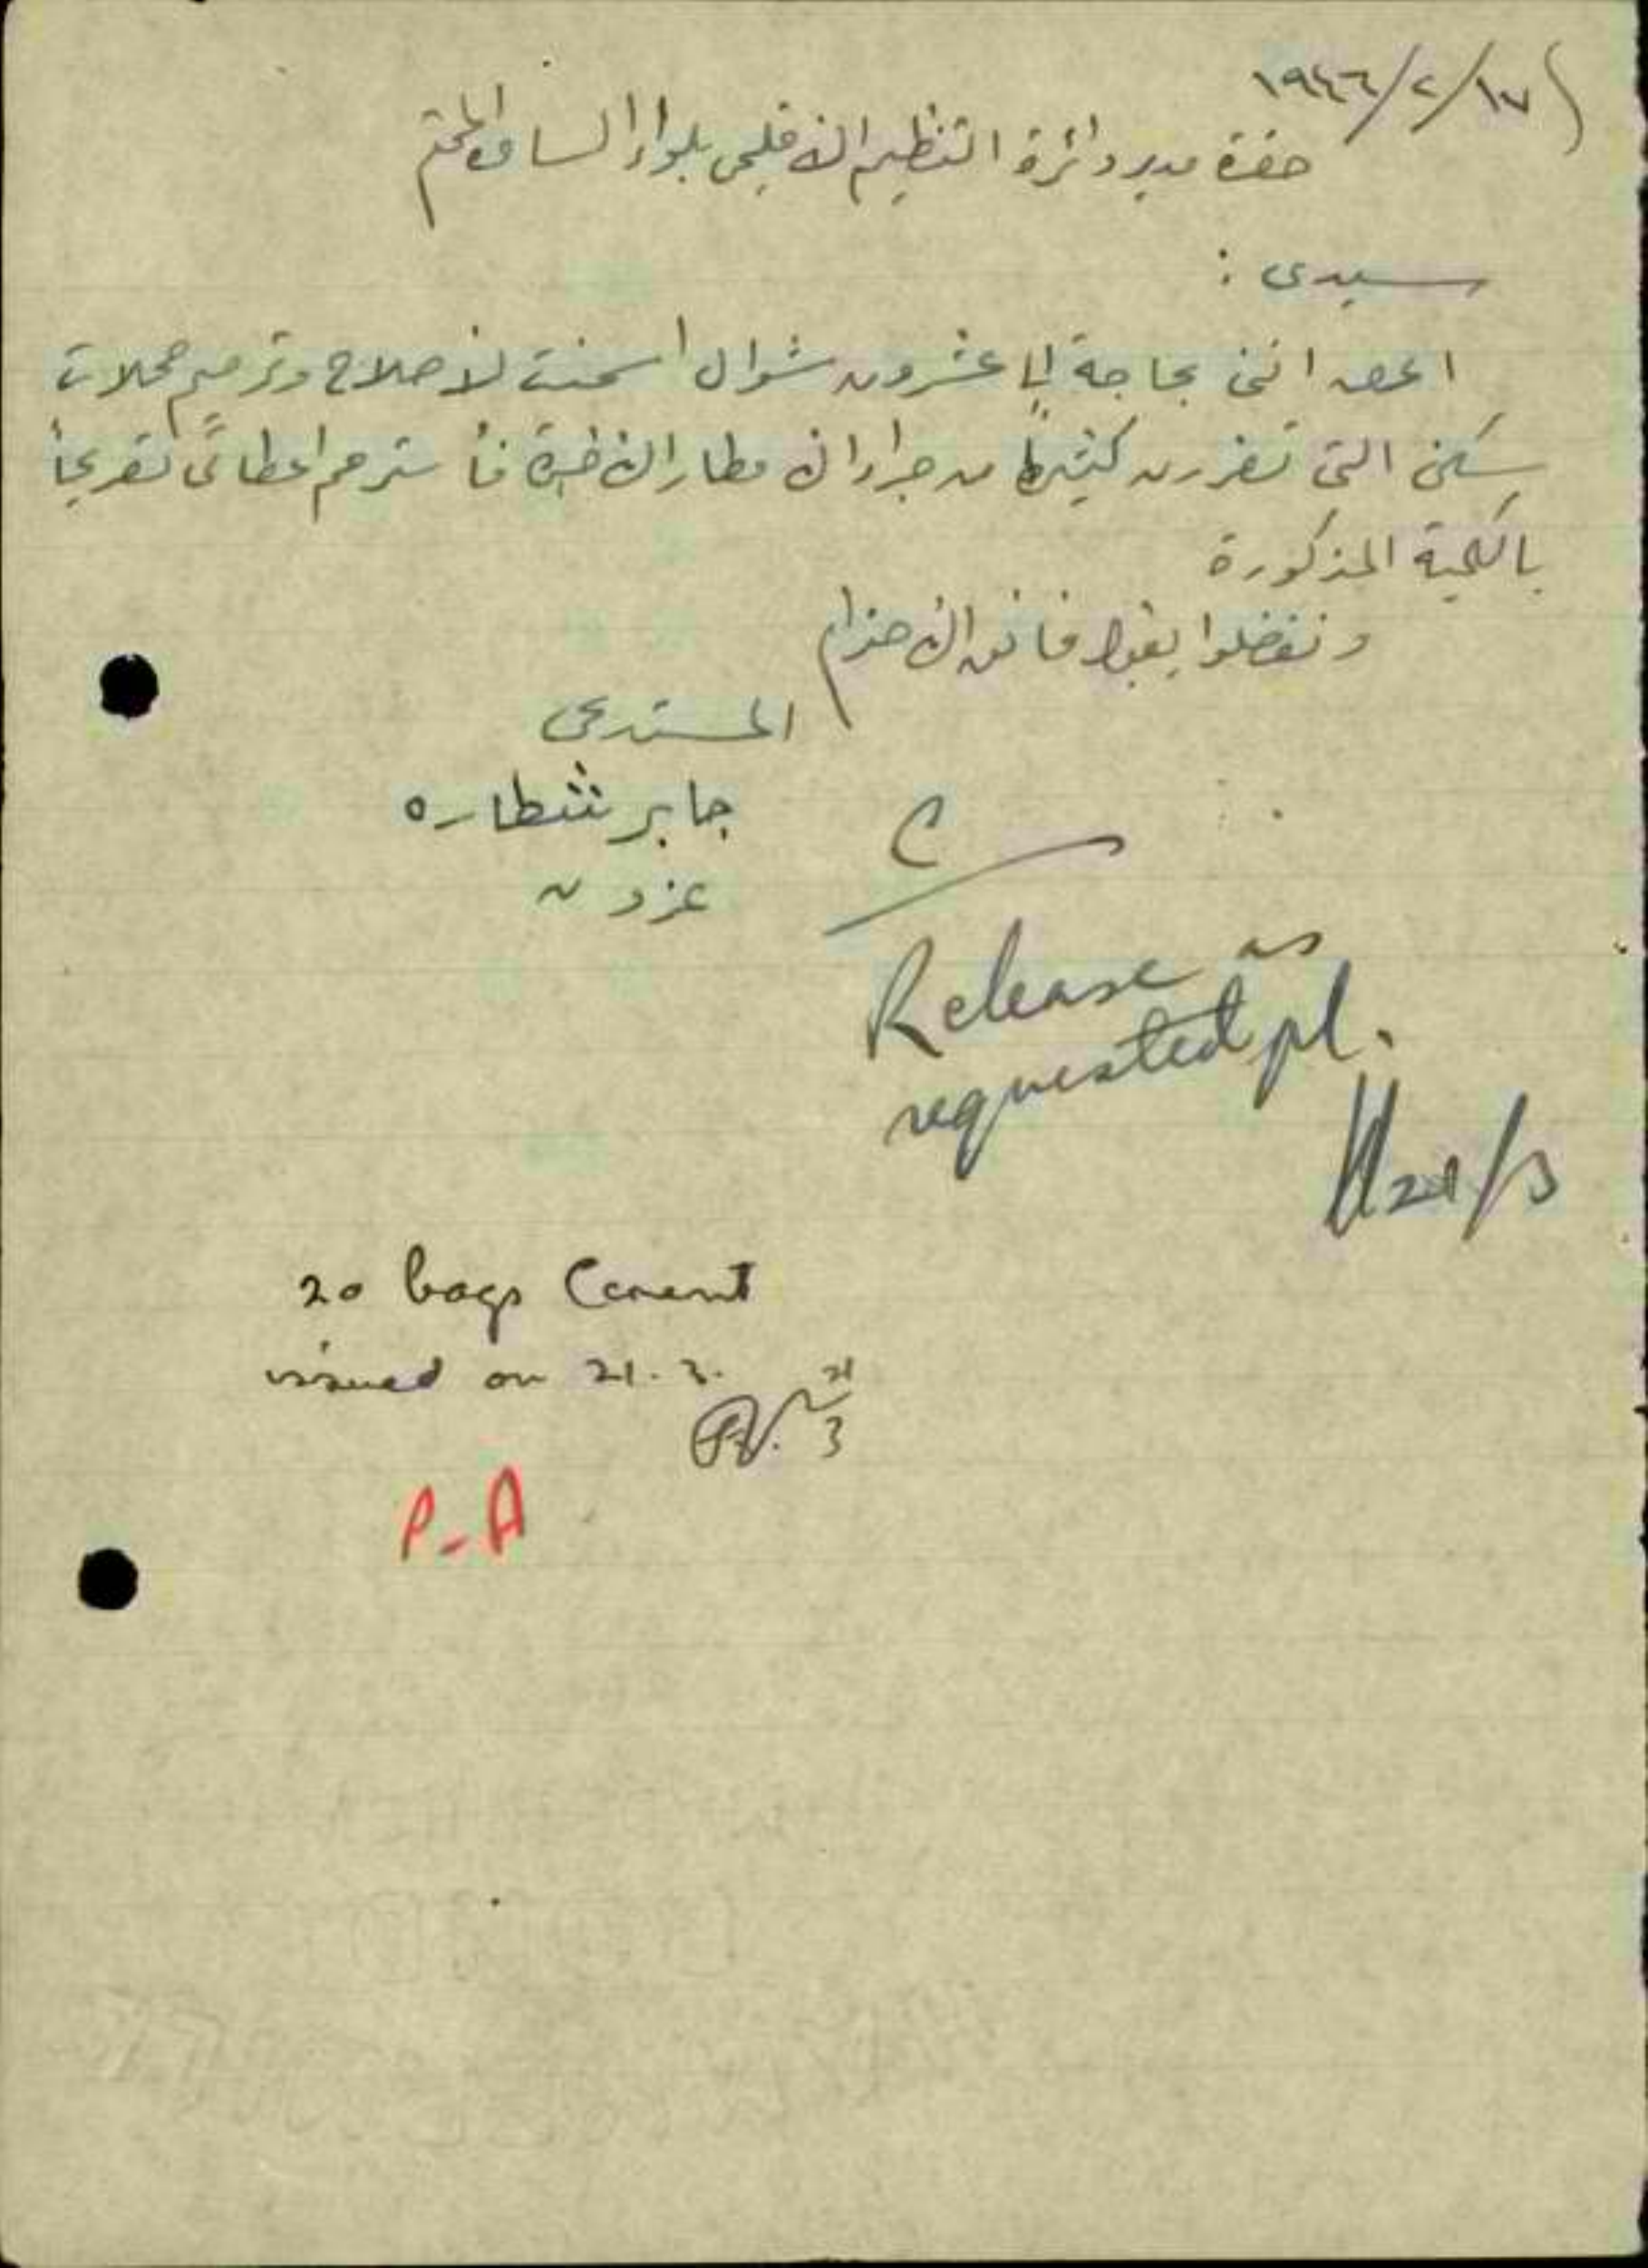 ١٩٤٦/٢/١٧
حضرة مدير دائرة التنظيم الاقليمي بلواء السامرة المحترم
سيدي :
اعرض انني بحاجة الى عشرون شوال اسمنت لاصلاح وترميم محلات
سكني التي تضررت كثيرا من جراء الامطار الاخيرة فأسترحم اعطائي تصريحاً
بالكمية المذكورة
وتفضلوا بقبول فائق الاحترام
المستدعي
جابر شطاره
عزون
Release as
requested pl.
21/3
20 bags Cement
issued on 21.3.
21
3
P-A